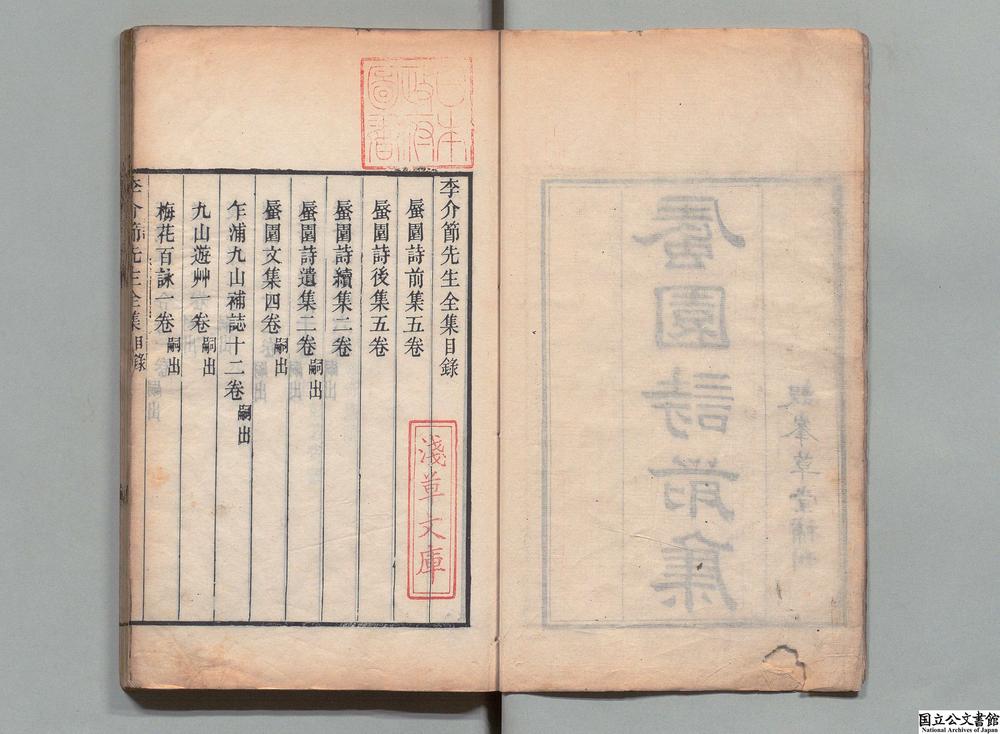 蜃園詩前集
李介節先生全集目錄
蜃園詩前集五卷
蜃園詩後集五卷
蜃園詩續集二卷
蜃園詩遺集二卷 嗣出
蜃園文集四卷 嗣出
乍浦九山補誌十二卷 嗣出
九山遊艸一卷 嗣出
梅花百詠一卷 嗣出
李介節先生全集目錄
日本政府圖書
淺草文庫
国立公文書館
National Archives of Japan